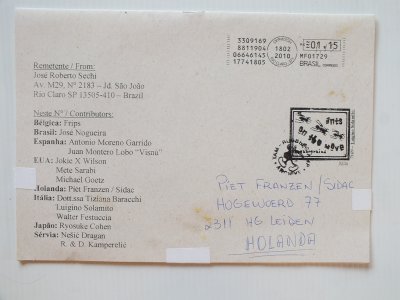 3309169
8811904
06646145
17741805
1802
2010
01 15
MF01729
BRASIL
Remetente / From:
José Roberto Sechi
Av. M29, Nº 2183 – Jd. São João
Rio Claro SP 13505-410 – Brazil
Neste Nº / Contributors:
Bélgica: Frips
Brasil: José Nogueira
Espanha: Antonio Moreno Garrido
Juan Montero Lobo "Visnú"
EUA: Jokie X Wilson
Mete Sarabi
Michael Goetz
Holanda: Piet Franzen / Sidac
Itália: Dott.ssa Tiziana Baracchi
Luigino Solamito
Walter Festuccia
Japão: Ryosuke Cohen
Sérvia: Nešić Dragan
R. & D. Kamperelic
Ants
on the move
PIET FRANZEN / SIDAC
HOGEWOERD 77
2311 HG LEIDEN
HOLANDA